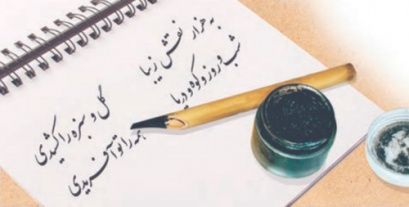 به هزار نقش زیبا
شب و روز و کوه و دریا
گل و سبزه را کشیدی
همه را تو آفریدی